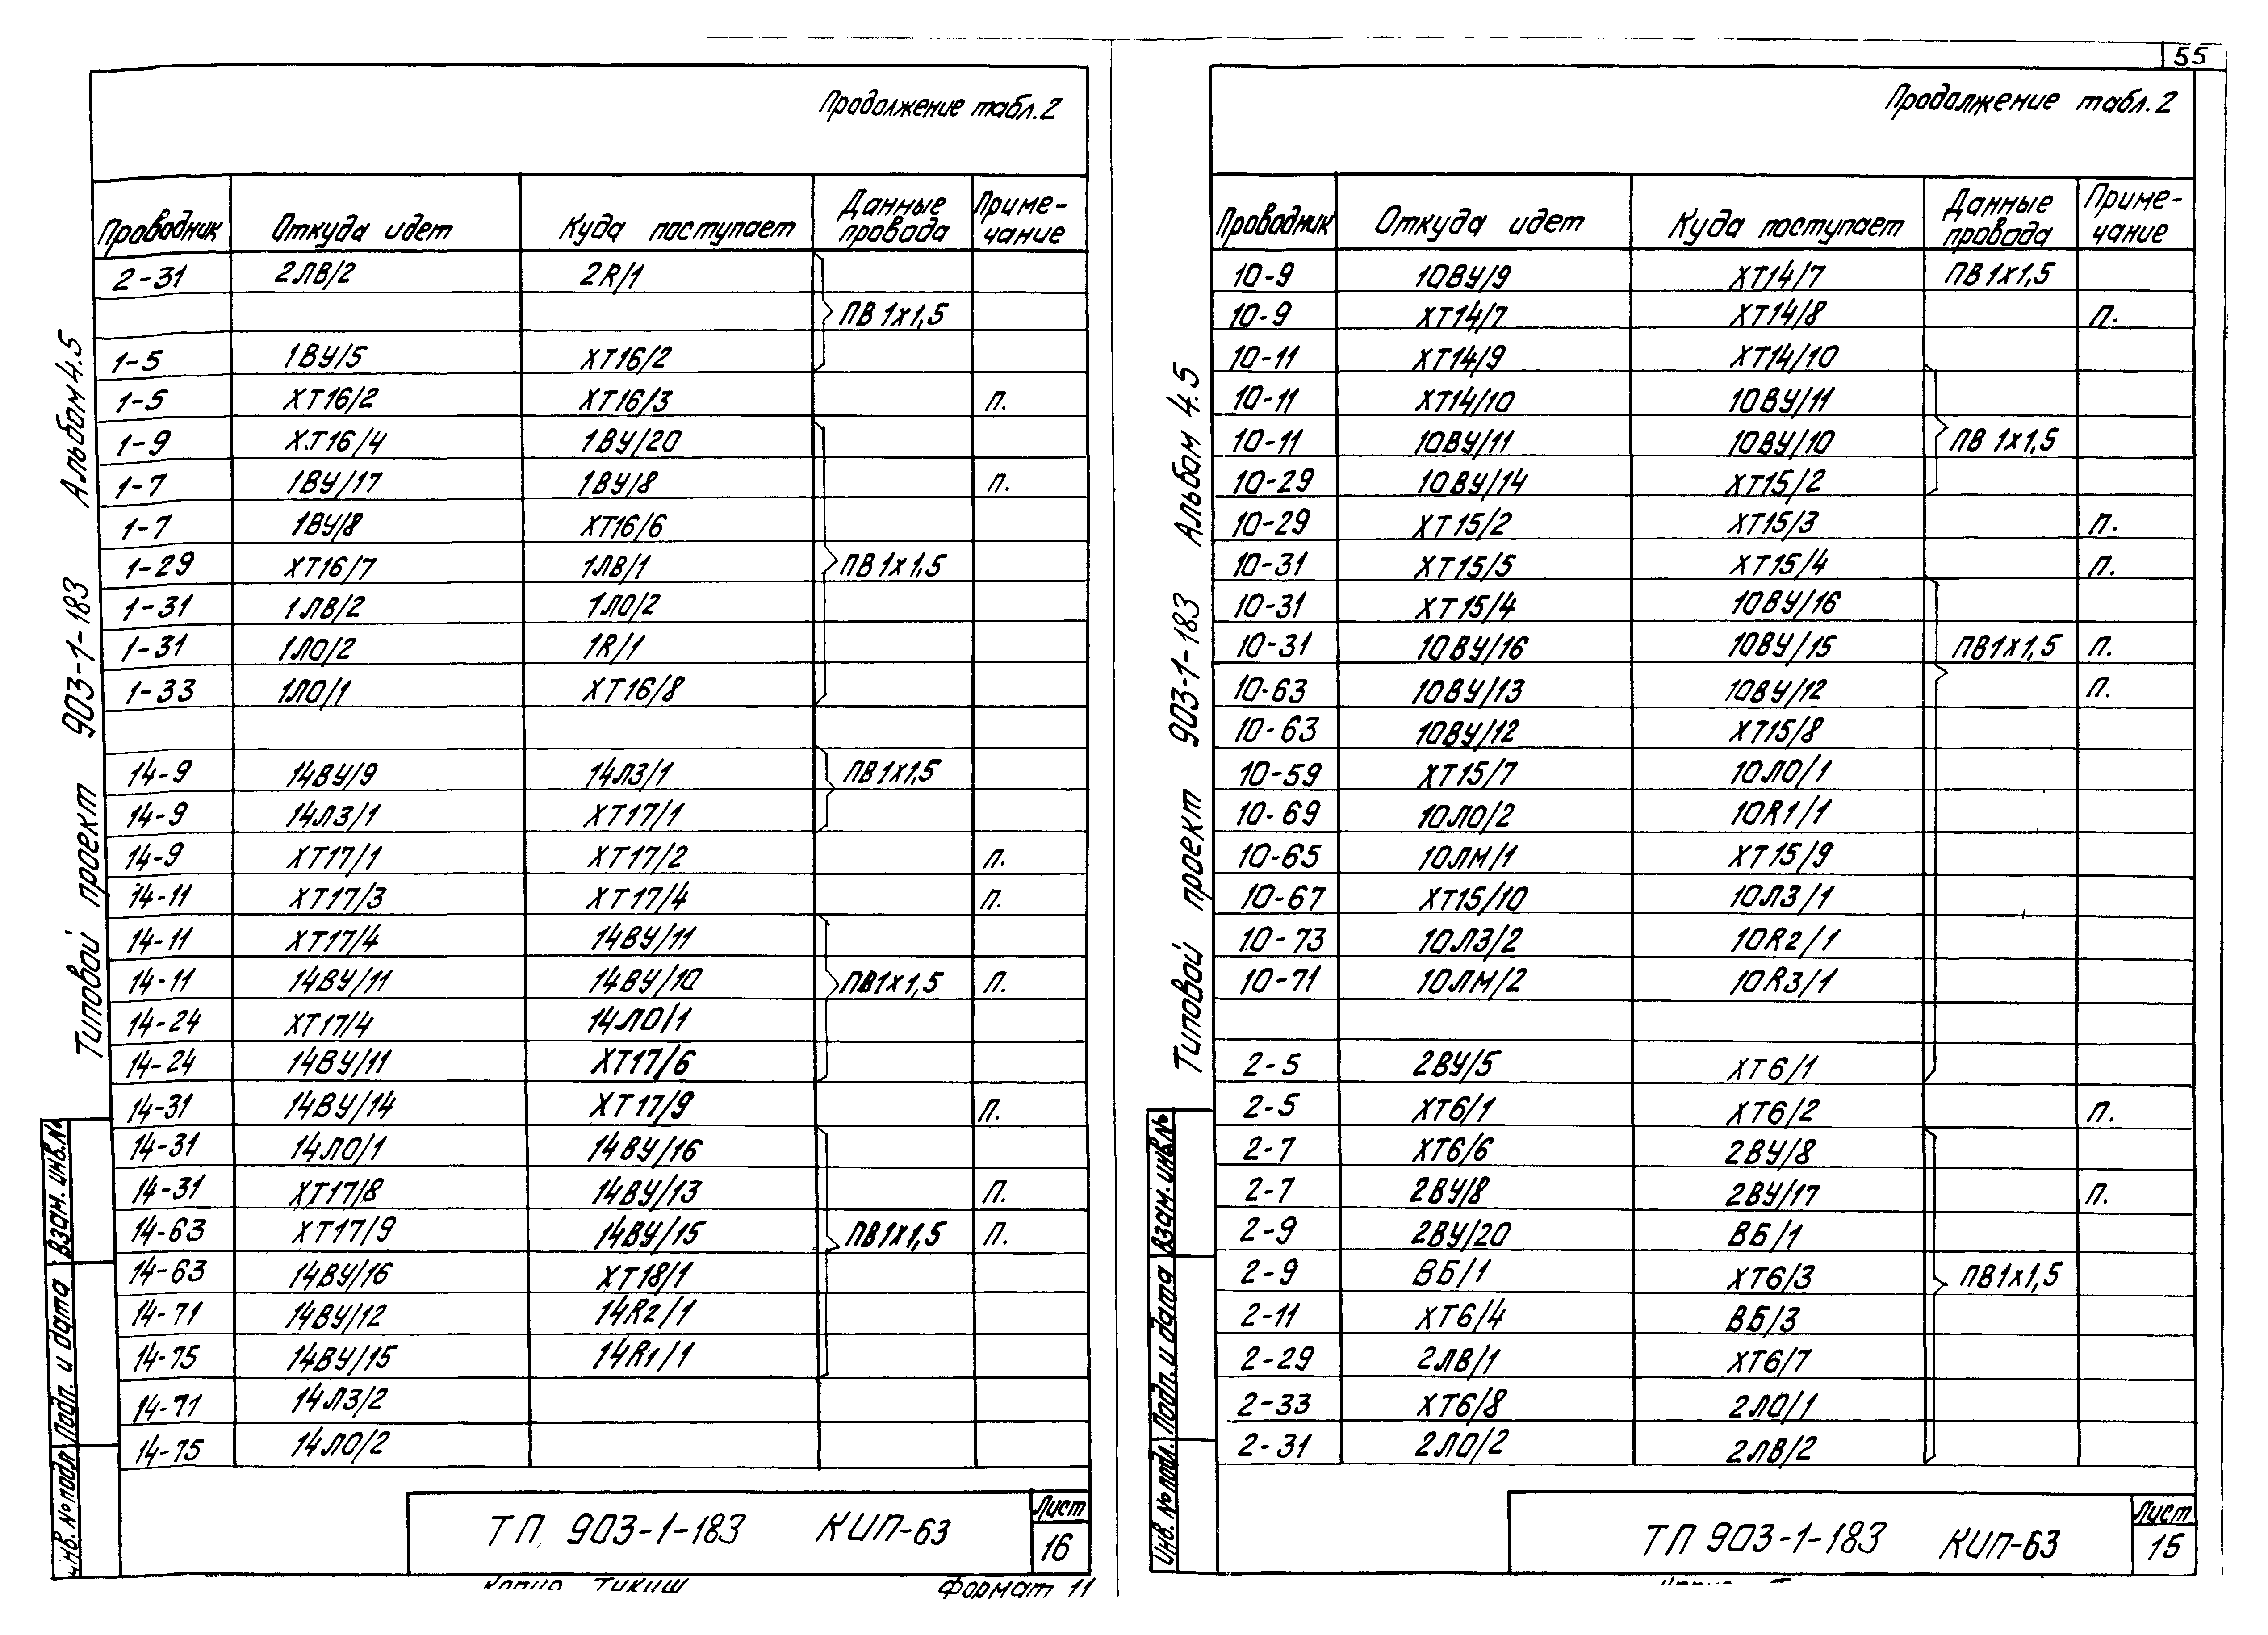 55
Продолжение табл.2
Проводник Откуда идет Куда поступает Данные провода Приме-чание
2-31 2ЛВ/2 2R/1
ПВ 1х1,5
1-5 1ВУ/5 ХТ16/2
1-5 ХТ16/2 ХТ16/3 п.
1-9 ХТ16/4 1ВУ/20
1-7 1ВУ/17 1ВУ/8 п.
1-7 1ВУ/8 ХТ16/6
1-29 ХТ16/7 1ЛВ/1 ПВ 1х1,5
1-31 1ЛВ/2 1ЛО/2
1-31 1ЛО/2 1R/1
1-33 1ЛО/1 ХТ16/8
14-9 14ВУ/9 14ЛЗ/1 ПВ 1х1,5
14-9 14ЛЗ/1 ХТ17/1
14-9 ХТ17/1 ХТ17/2 п.
14-11 ХТ17/3 ХТ17/4 п.
14-11 ХТ17/4 14ВУ/11
14-11 14ВУ/11 14ВУ/10 ПВ1х1,5 п.
14-24 ХТ17/4 14ЛО/1
14-24 14ВУ/11 ХТ17/6
14-31 14ВУ/14 ХТ17/9 п.
14-31 14ЛО/1 14ВУ/16
14-31 ХТ17/8 14ВУ/13 п.
14-63 ХТ17/9 14ВУ/15 ПВ1х1,5 п.
14-63 14ВУ/16 ХТ18/1
14-71 14ВУ/12 14R2/1
14-75 14ВУ/15 14R1/1
14-71 14ЛЗ/2
14-75 14ЛО/2
Типовой проект 903-1-183 Альбом 4.5
Взам. инв.№
Подп. и дата
Инв. № подл
ТП 903-1-183 КИП-63
Лист
16
Формат 11
Продолжение табл.2
Проводник Откуда идет Куда поступает Данные провода Приме-чание
10-9 10ВУ/9 ХТ14/7 ПВ 1х1,5
10-9 ХТ14/7 ХТ14/8 п.
10-11 ХТ14/9 ХТ14/10
10-11 ХТ14/10 10ВУ/11
10-11 10ВУ/11 10ВУ/10 ПВ 1х1,5
10-29 10ВУ/14 ХТ15/2
10-29 ХТ15/2 ХТ15/3 п.
10-31 ХТ15/5 ХТ15/4 п.
10-31 ХТ15/4 10ВУ/16
10-31 10ВУ/16 10ВУ/15 ПВ1х1,5 п.
10-63 10ВУ/13 10ВУ/12 п.
10-63 10ВУ/12 ХТ15/8
10-59 ХТ15/7 10ЛО/1
10-69 10ЛО/2 10R1/1
10-65 10ЛМ/1 ХТ15/9
10-67 ХТ15/10 10ЛЗ/1
10-73 10ЛЗ/2 10R2/1
10-71 10ЛМ/2 10R3/1
2-5 2ВУ/5 ХТ6/1
2-5 ХТ6/1 ХТ6/2 п.
2-7 ХТ6/6 2ВУ/8
2-7 2ВУ/8 2ВУ/17 п.
2-9 2ВУ/20 ВБ/1
2-9 ВБ/1 ХТ6/3 ПВ1х1,5
2-11 ХТ6/4 ВБ/3
2-29 2ЛВ/1 ХТ6/7
2-33 ХТ6/8 2ЛО/1
2-31 2ЛО/2 2ЛВ/2
Типовой проект 903-1-183 Альбом 4.5
Взам. инв.№
Подп. и дата
Инв. № подл.
ТП 903-1-183 КИП-63
Лист
15